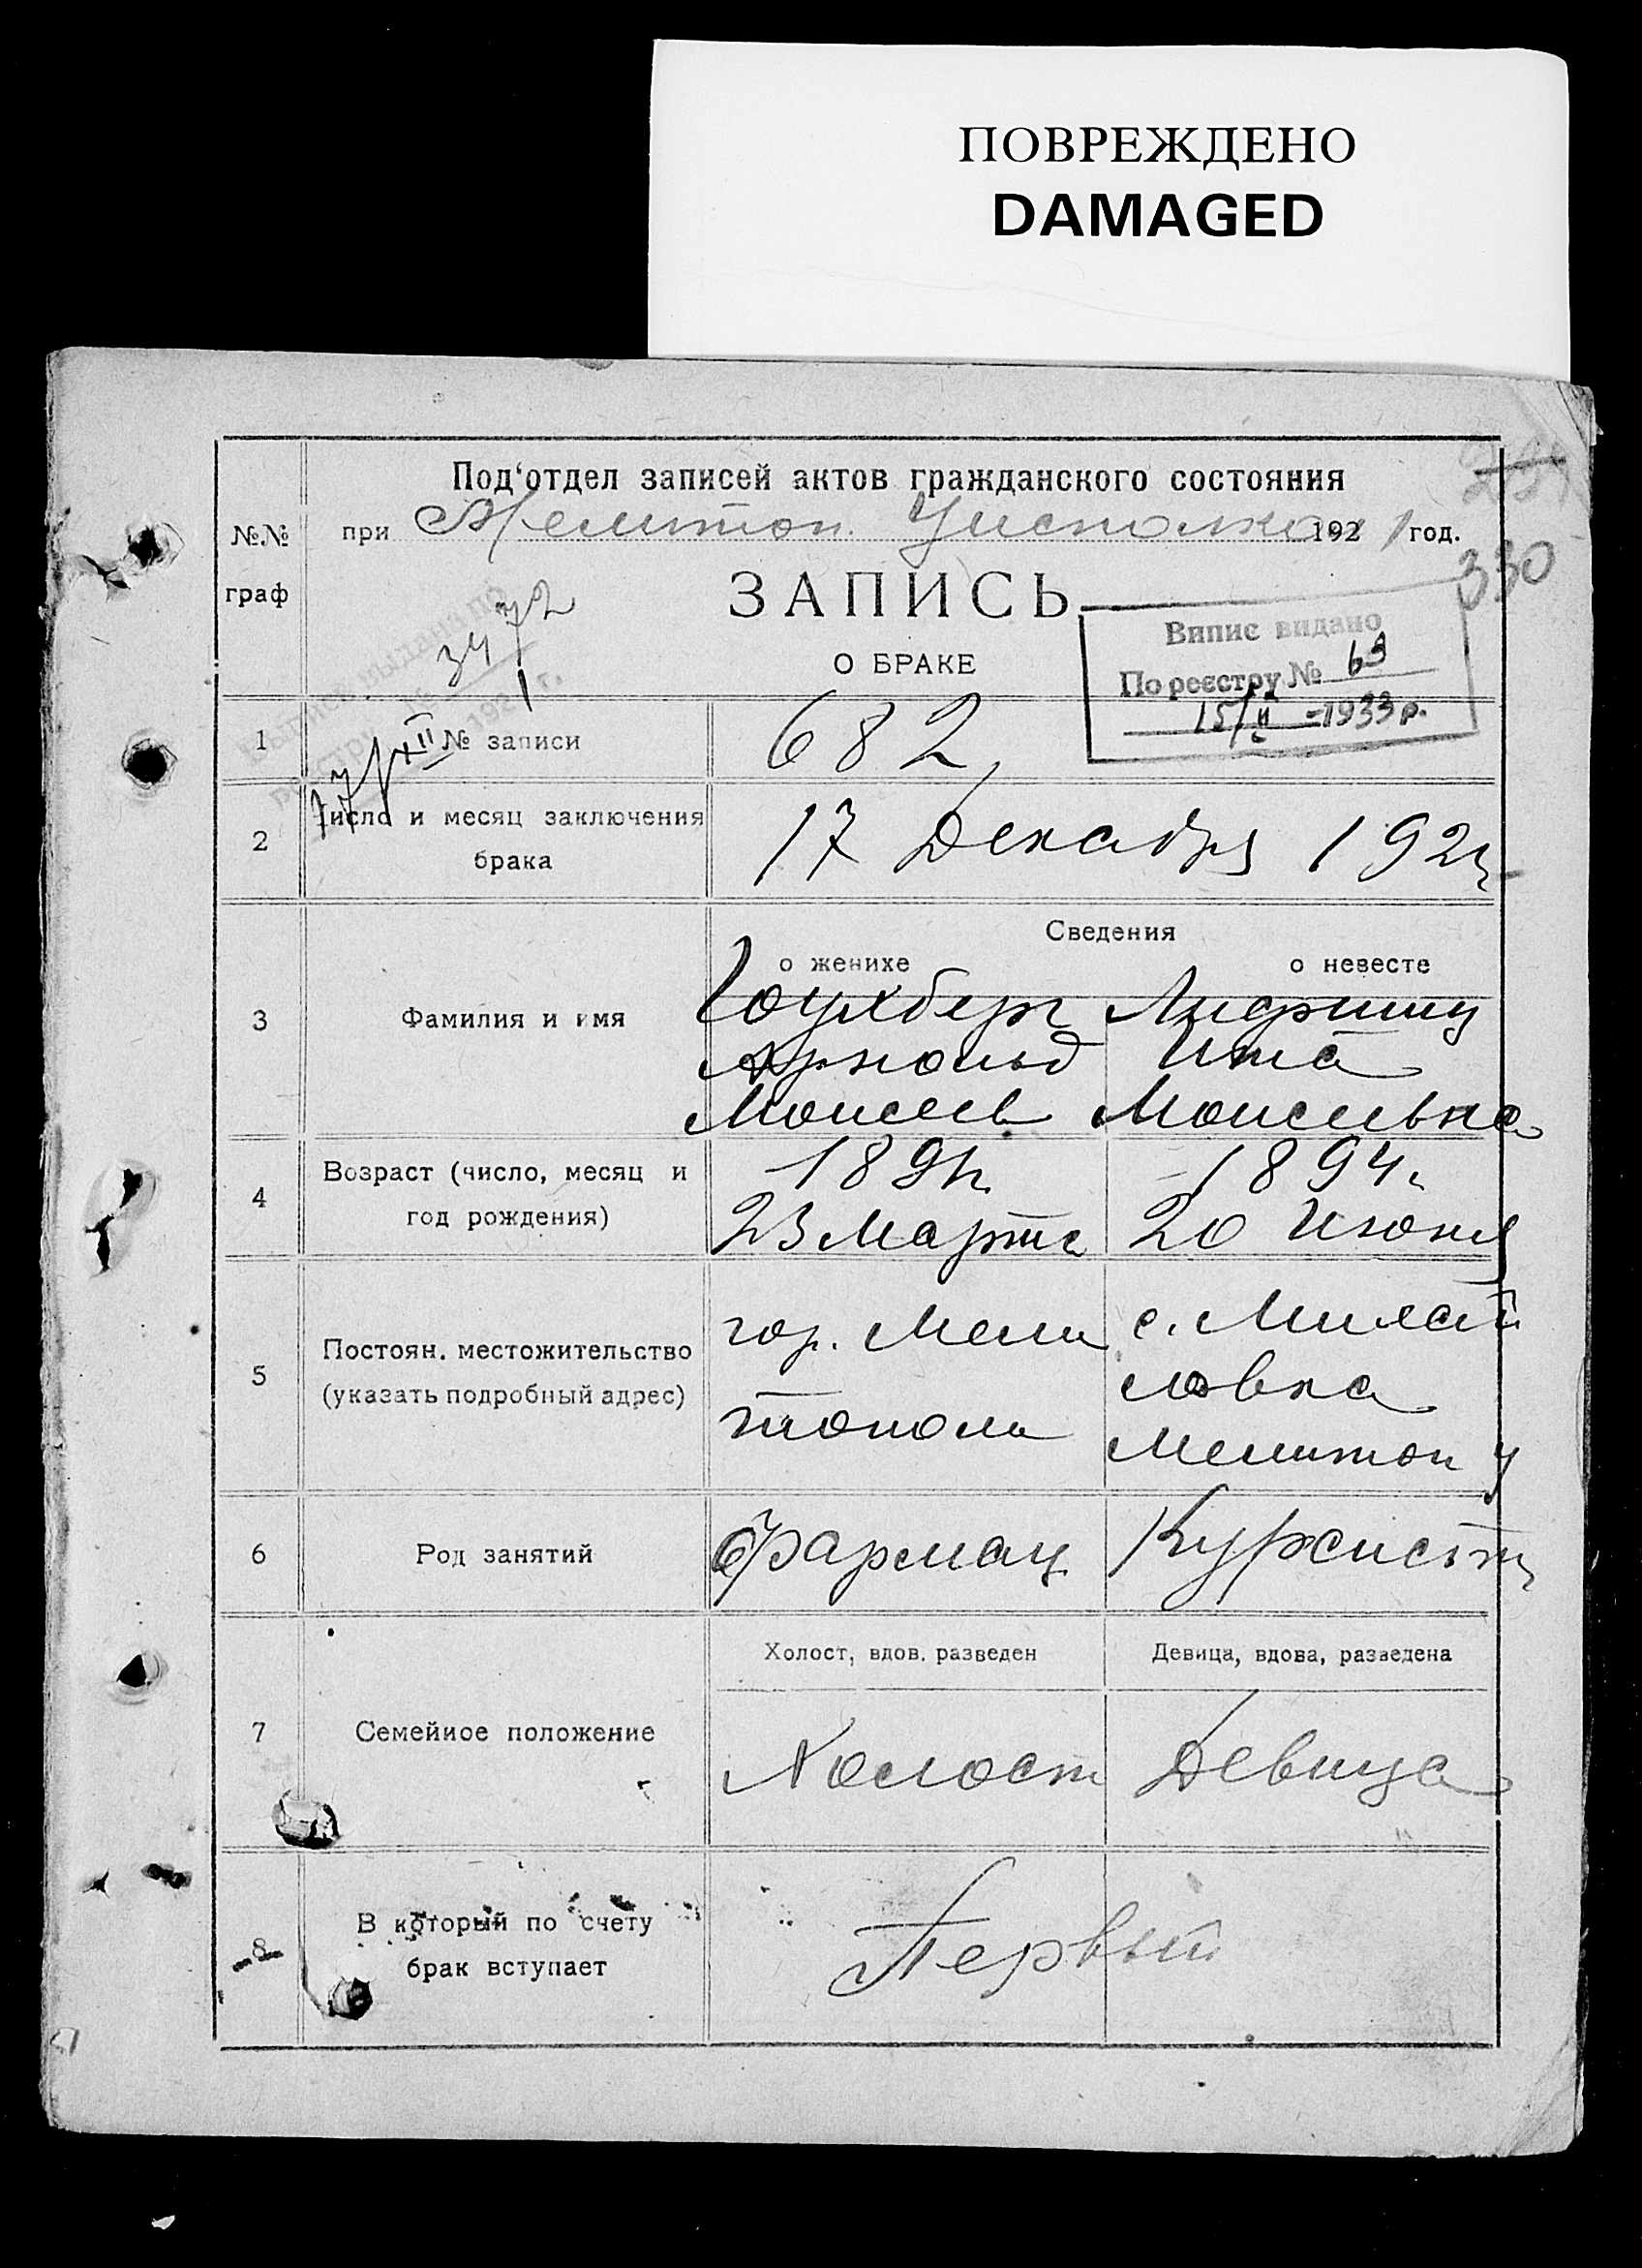 ПОВРЕЖДЕНО
DAMAGED
Под'отдел записей актов гражданского состояния
при Мелитоп. Уисполкома 1921 год.
№№
граф
330
ЗАПИСЬ
О БРАКЕ
3472
Випис видано
По реєстру № 63
15/II -1933 р.
1 № записи 682
17/XII
2 Число и месяц заключения
брака
17 Декабря 1921
Сведения
о женихе о невесте
3 Фамилия и имя
Лифшиц
Арнольд Ита
Моисеев Моисеевна
4 Возраст (число, месяц и
год рождения)
1894г.
23 Марта 20 Июня
5 Постоян. местожительство
(указать подробный адрес)
гор. Мели с.
тополь
Мелитоп у
6 Род занятий Фармац Курсистк
Холост, вдов, разведен Девица, вдова, разведена
7 Семейное положение Холост Девица
8 В который по счету
брак вступает
Первый